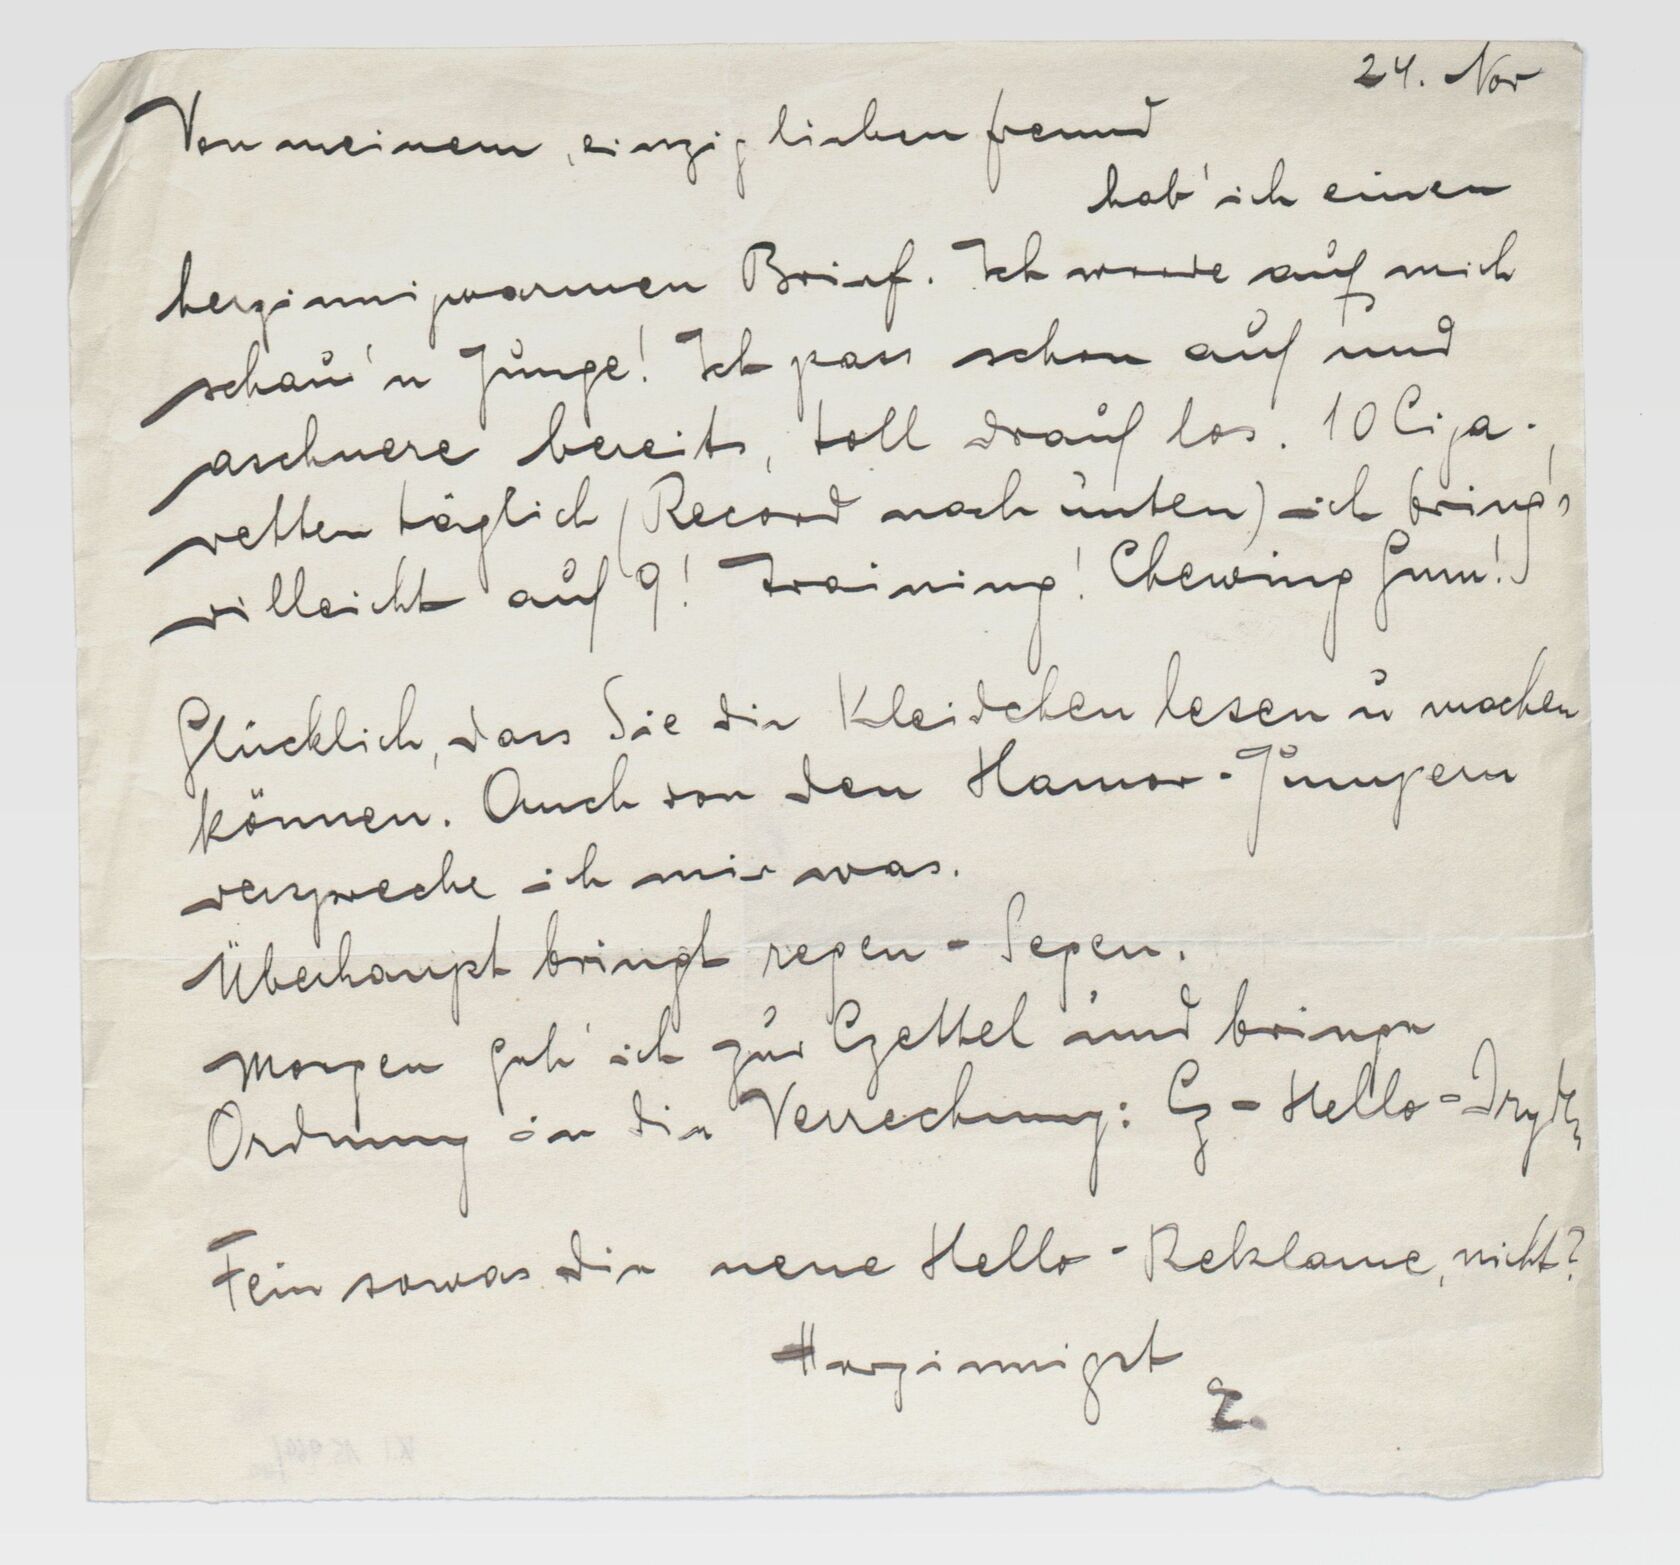 24. Nov
Von meinem, einzig lieben freund
hab' ich einen
herzinnigwarmen Brief. Ich werde auf mich
schau'n Junge! Ich pass schon auf und
aschnere bereits, toll drauf los. 10 Ciga-
retten täglich (Record nach unten) ich bring's
villeicht auf 9! Training! Chewing Gum!)
Glücklich, dass Sie die Kleidchen lesen u machen
können. Auch von den Hamor-Jumpern
verspreche ich mir was.
Überhaupt bringt regen - Segen.
Morgen geh' ich zur Czettel und bringe
Ordnung in die Verrechnung: Cz - Hello -
Fein sowas die neue Hello - Reklame, nicht?
Herzinnigst